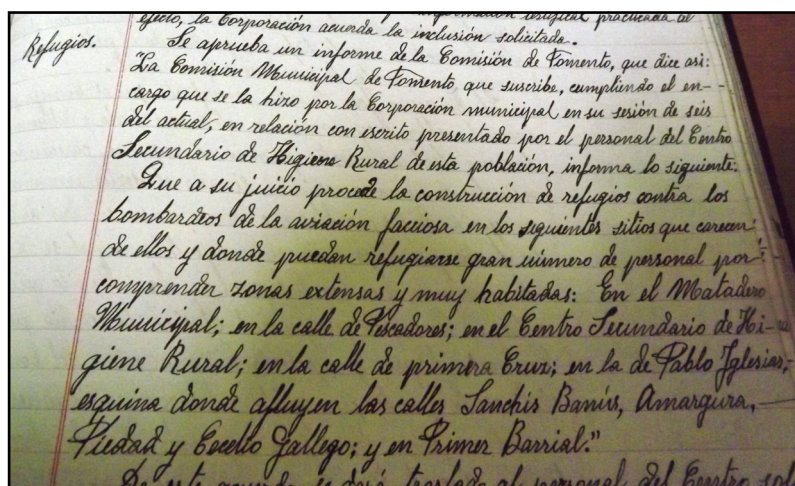 efecto, la Corporación acuerda la inclusión solicitada.
Refugios. Se aprueba un informe de la Comisión de Fomento, que dice asi:
"La Comisión Municipal de Fomento que suscribe, cumpliendo el en-
cargo que se la hizo por la Corporación municipal en su sesión de seis
del actual, en relación con escrito presentado por el personal del Centro
Secundario de Higiene Rural de esta población, informa lo siguiente:
Que a su juicio procede la construcción de refugios contra los
bombardeos de la aviación facciosa en los siguientes sitios que carecen
de ellos y donde puedan refugiarse gran número de personal por
comprender zonas extensas y muy habitadas: En el Matadero
Municipal; en la calle de Pescadores; en el Centro Secundario de Hi-
giene Rural; en la calle de primera Cruz; en la de Pablo Iglesias,
esquina donde afluyen las calles Sanchis Banús, Amargura,
Piedad y Gallego; y en Primer Barrial."
De este acuerdo se dará traslado al personal del Centro